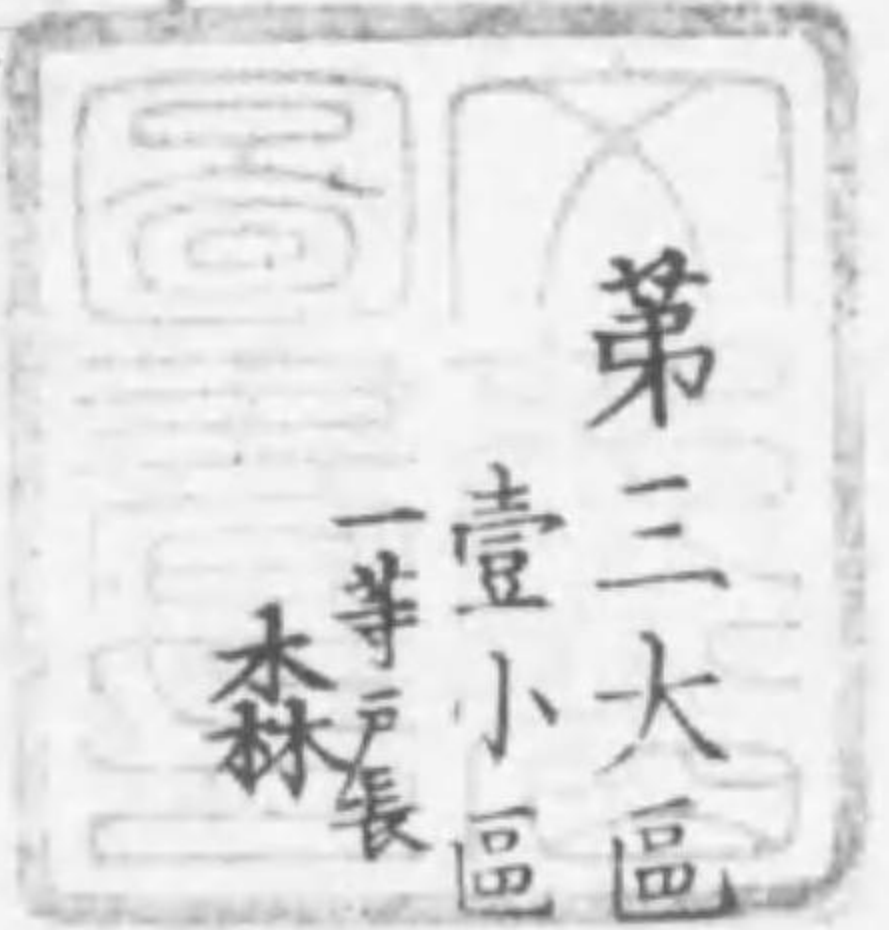 第三大區
壹小區
一等戸長
森